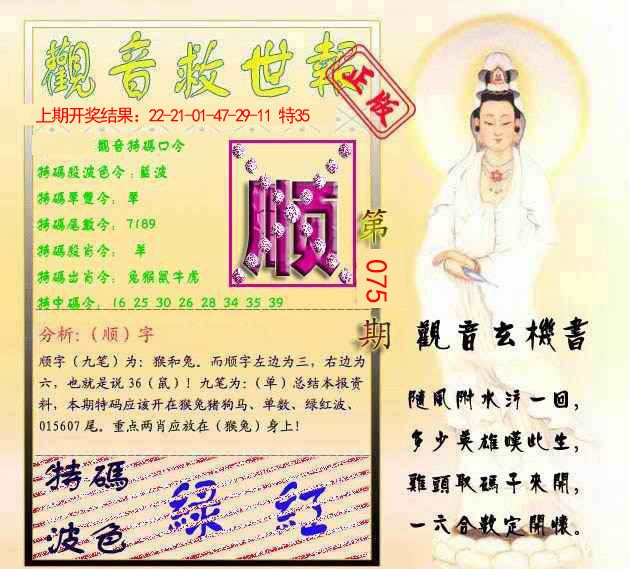 觀音救世報
正版
上期开奖结果：22-21-01-47-29-11 特35
觀音特碼口令
特碼殺波色令：藍波
特碼單雙令： 單
特碼尾數令： 7189
特碼殺肖令： 單
特碼出肖令： 兔猴鼠牛虎
特中碼令： 16 25 30 26 28 34 35 39
顺
第
075
期
分析:（顺）字
顺字（九笔）为：猴和兔。而顺字左边为三，右边为
六，也就是说 36（鼠）！九笔为：（单）总结本报资
料，本期特码应该开在猴兔猪狗马、单数、绿红波、
015607 尾。重点两肖应放在（猴兔）身上！
特碼
波色
綠 紅
觀音玄機書
隨風附水洋一回，
多少英雄嘆此生，
難頭取碼子來開，
一六合數定開懷。